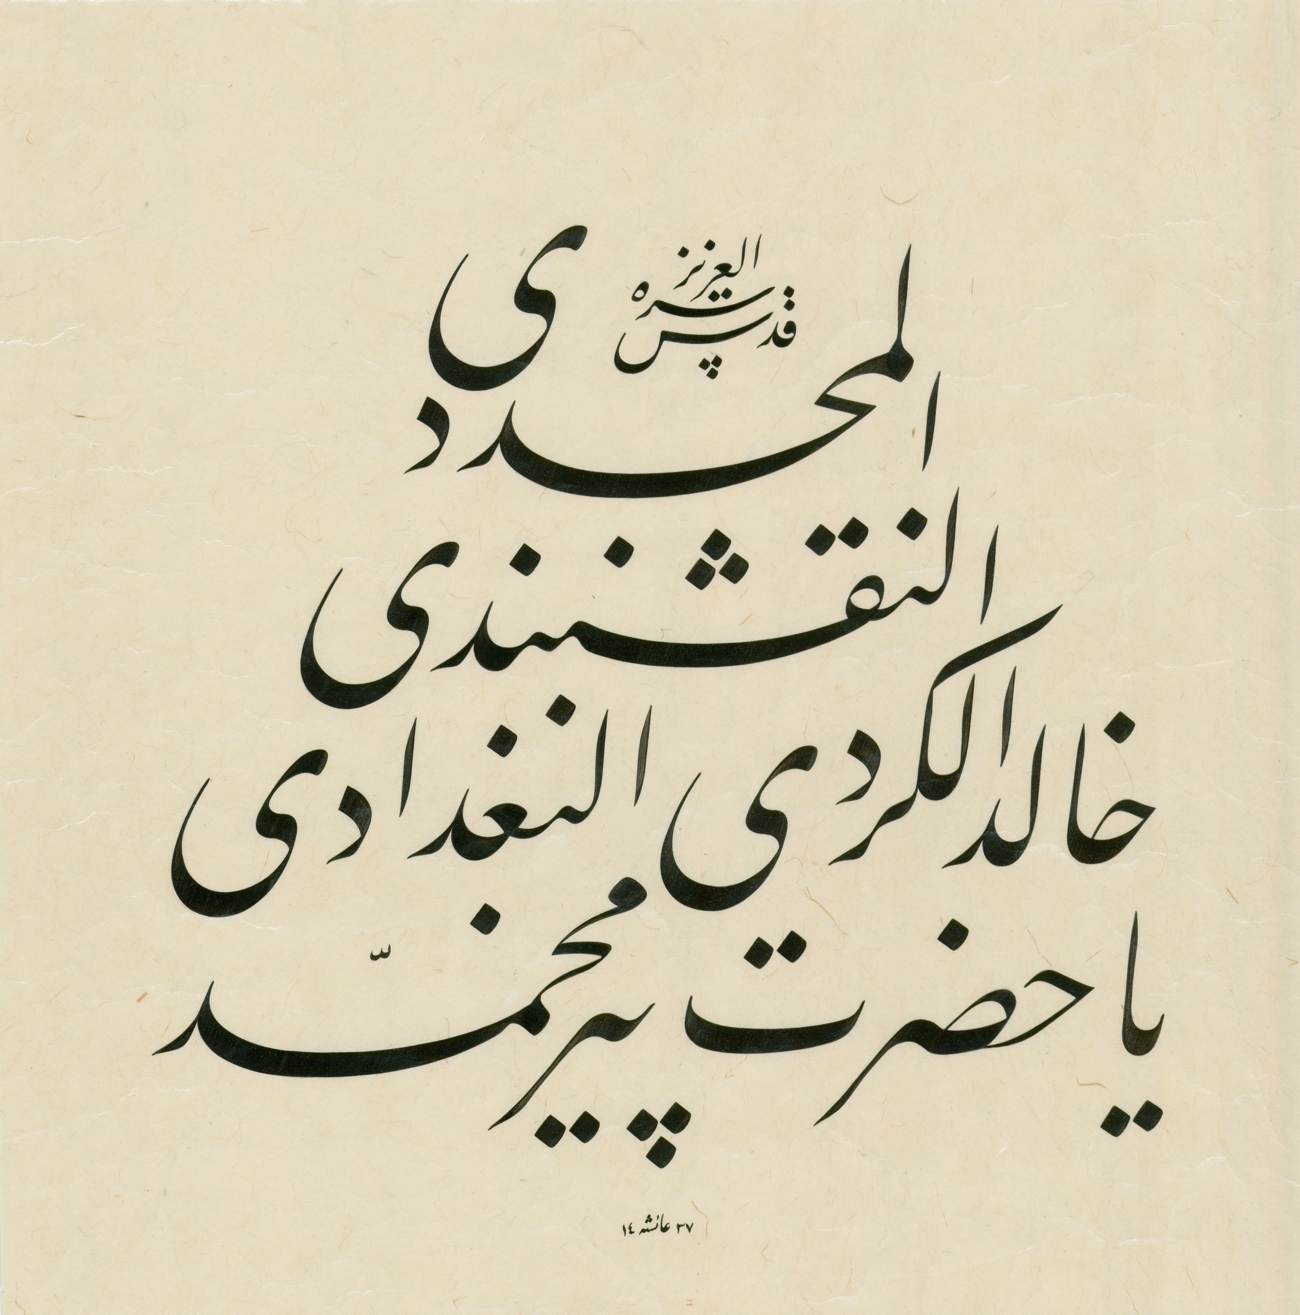 يا حضرت پير محمّد
خالد الكردى البغدادى
النقشبندى
المجددى
قدس سره العزيز
٣٧ عائشه ١٤